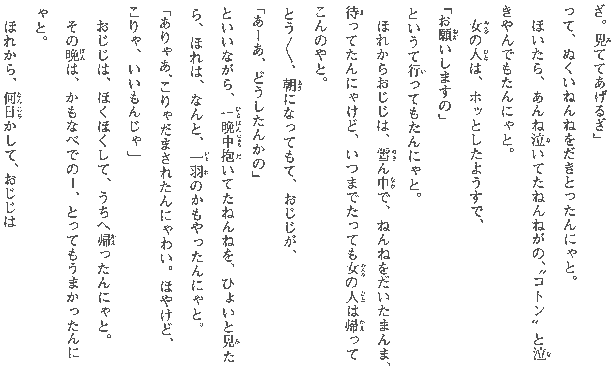 ざ。見ててあげるざ」
って、ぬくいねんねをだきとったんにゃと。
ほいたら、あんね泣いてたねんねがの、〝コトン〟と泣
きやんでもたんにゃと。
女の人は、ホッとしたようすで、
「お願いしますの」
というて行ってもたんにゃと。
ほれからおじじは、雪ん中で、ねんねをだいたまんま、
待ってたんにゃけど、いつまでたっても女の人は帰って
こんのやと。
とう〳〵、朝になってもて、おじじが、
「あーあ、どうしたんかの」
といいながら、一晩中抱いてたねんねを、ひょいと見た
ら、ほれは、なんと、一羽のかもやったんにゃと。
「ありゃあ、こりゃだまされたんにゃわい。ほやけど、
こりゃ、いいもんじゃ」
おじじは、ほくほくして、うちへ帰ったんにゃと。
その晩は、かもなべでのー、とってもうまかったんに
ゃと。
ほれから、何日かして、おじじは